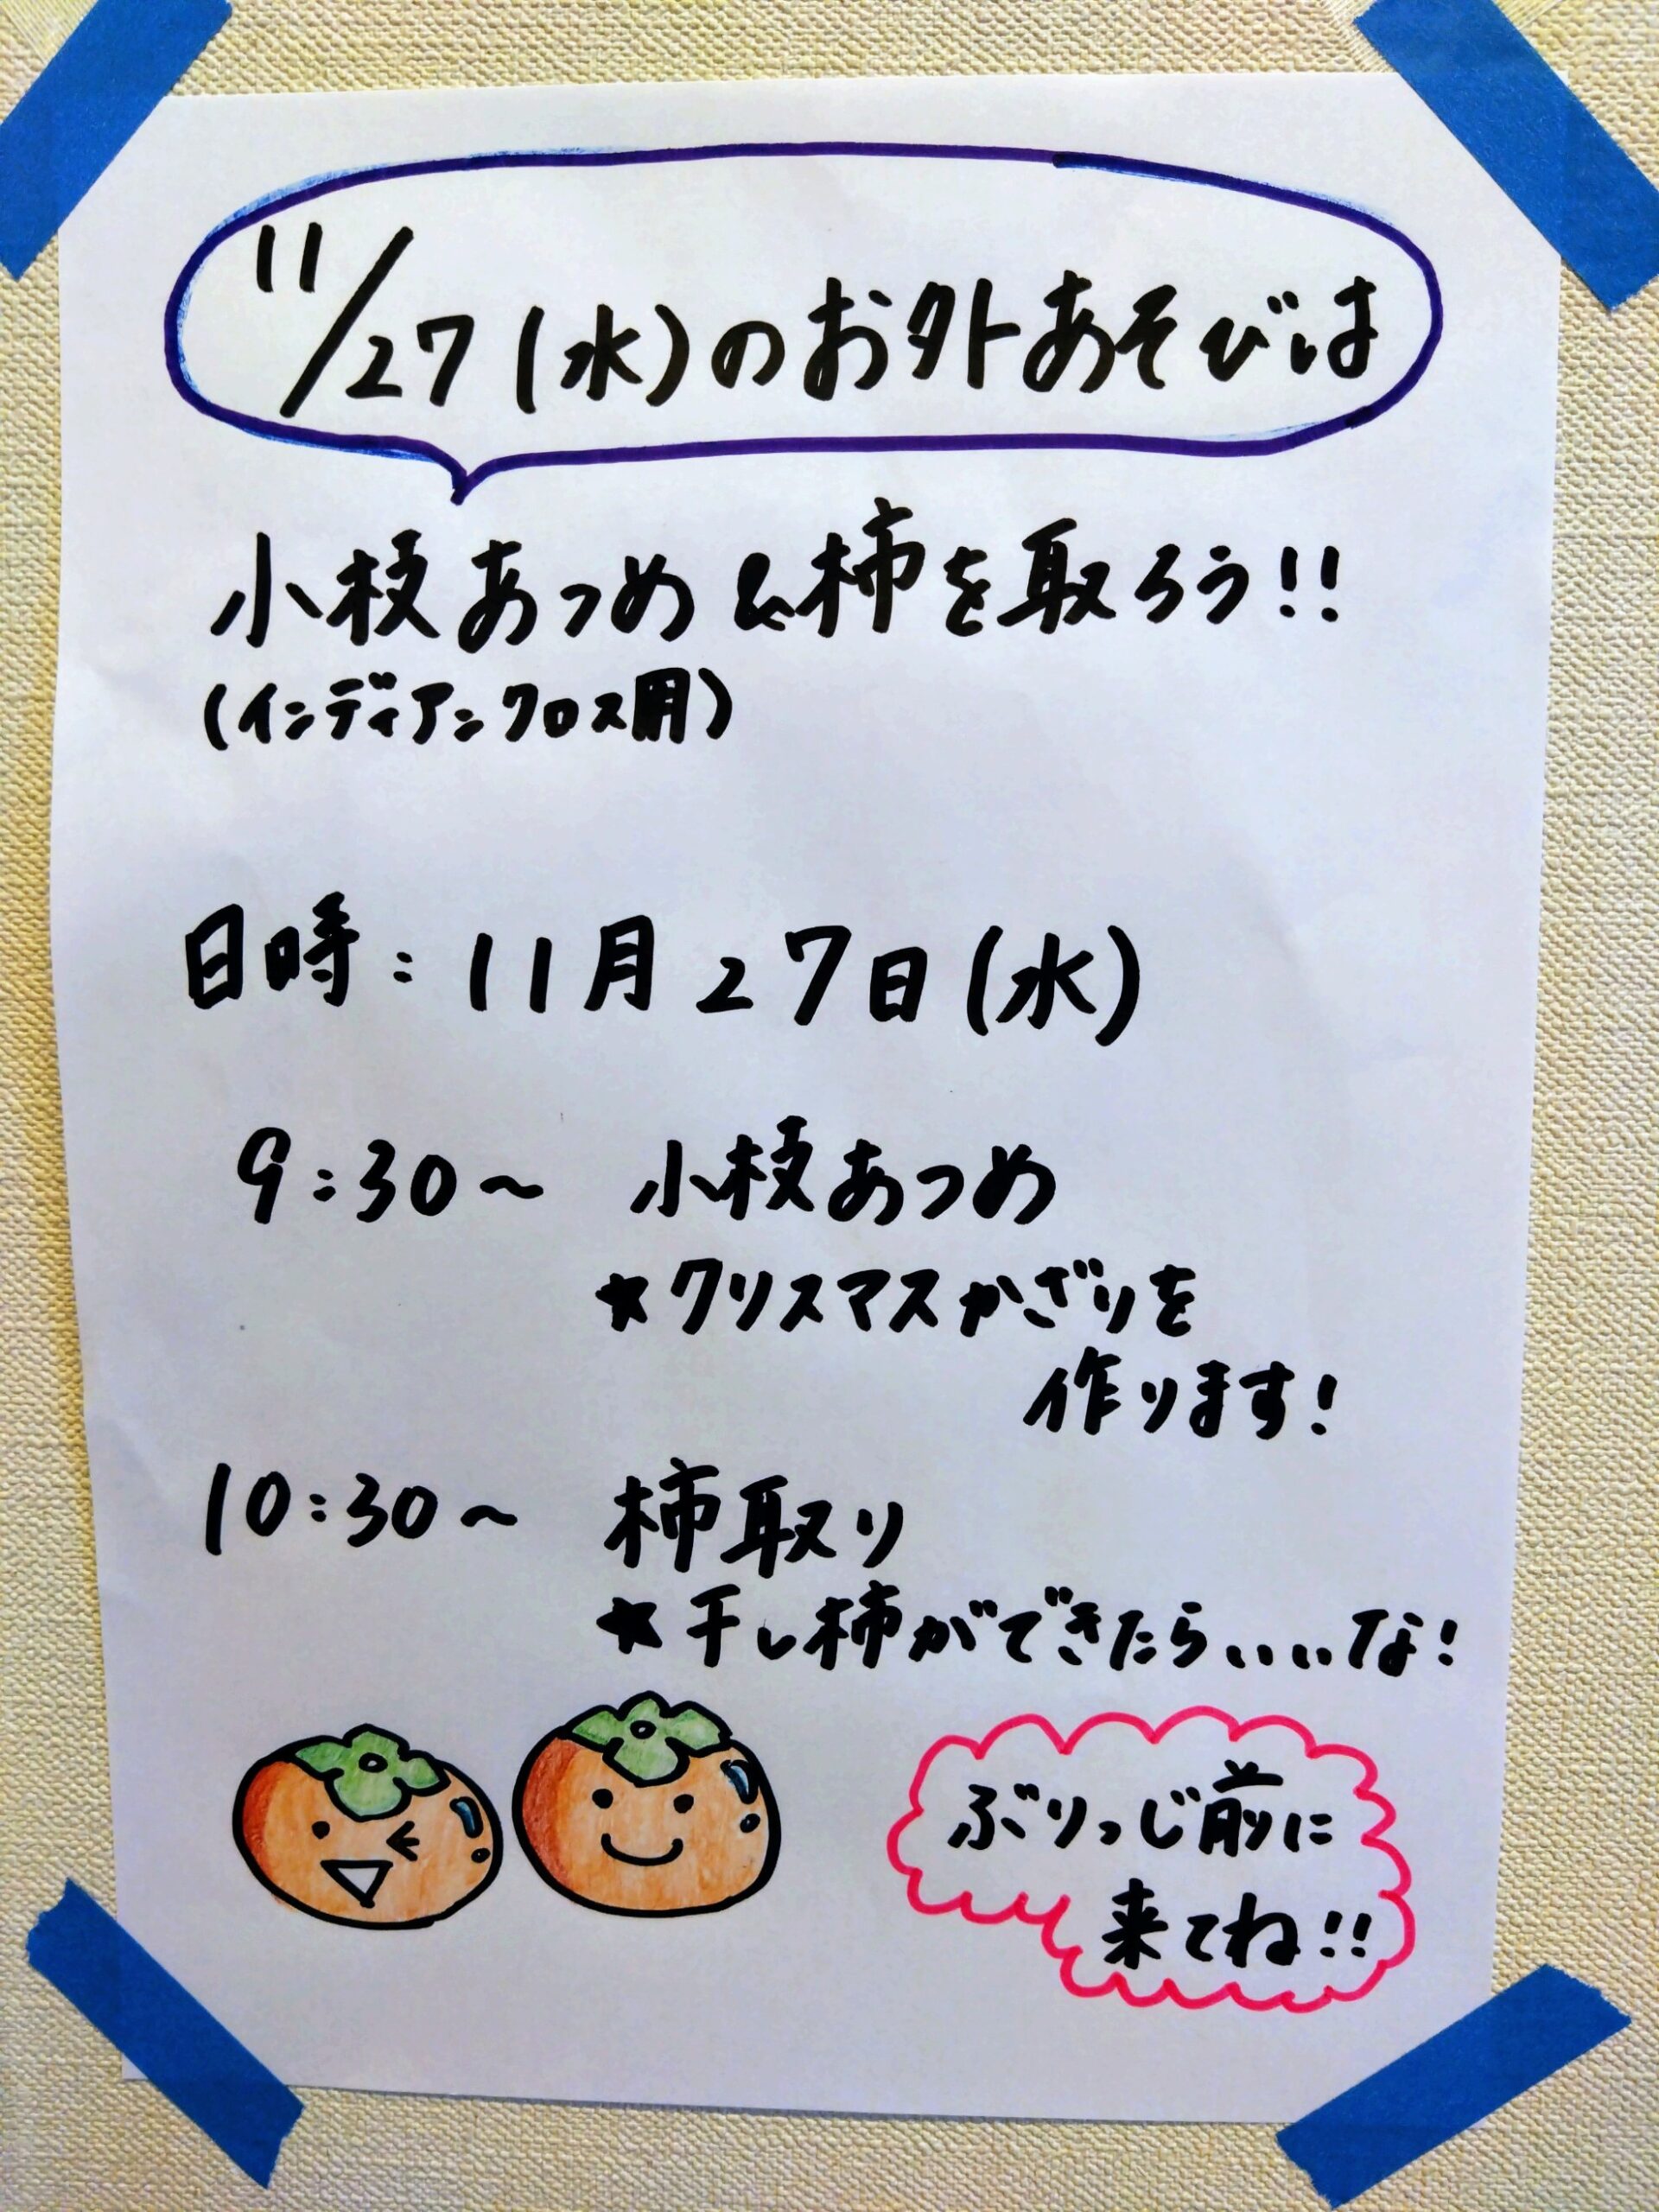 11/27(水)のお外あそびは
小枝あつめ&柿を取ろう!!
(インディアンクロス用)
日時:11月27日(水)
9:30~ 小枝あつめ
★クリスマスかざりを
作ります!
10:30~ 柿取り
★干し柿ができたらいいな!
ぶりっじ前に
来てね!!